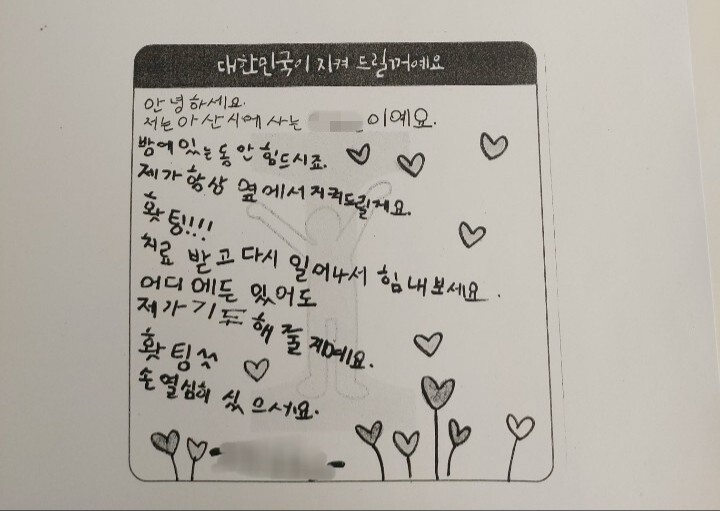 대한민국이 지켜 드릴꺼예요
안녕하세요.
저는 아산시에 사는 이예요.
방에 있는 동안 힘드시죠.
제가 항상 옆에서 지켜드릴게요.
홧팅!!!
치료 받고 다시 일어나서 힘내보세요.
어디에든 있어도
제가 기도해줄게예요.
홧팅
손 열심히 씼으세요.